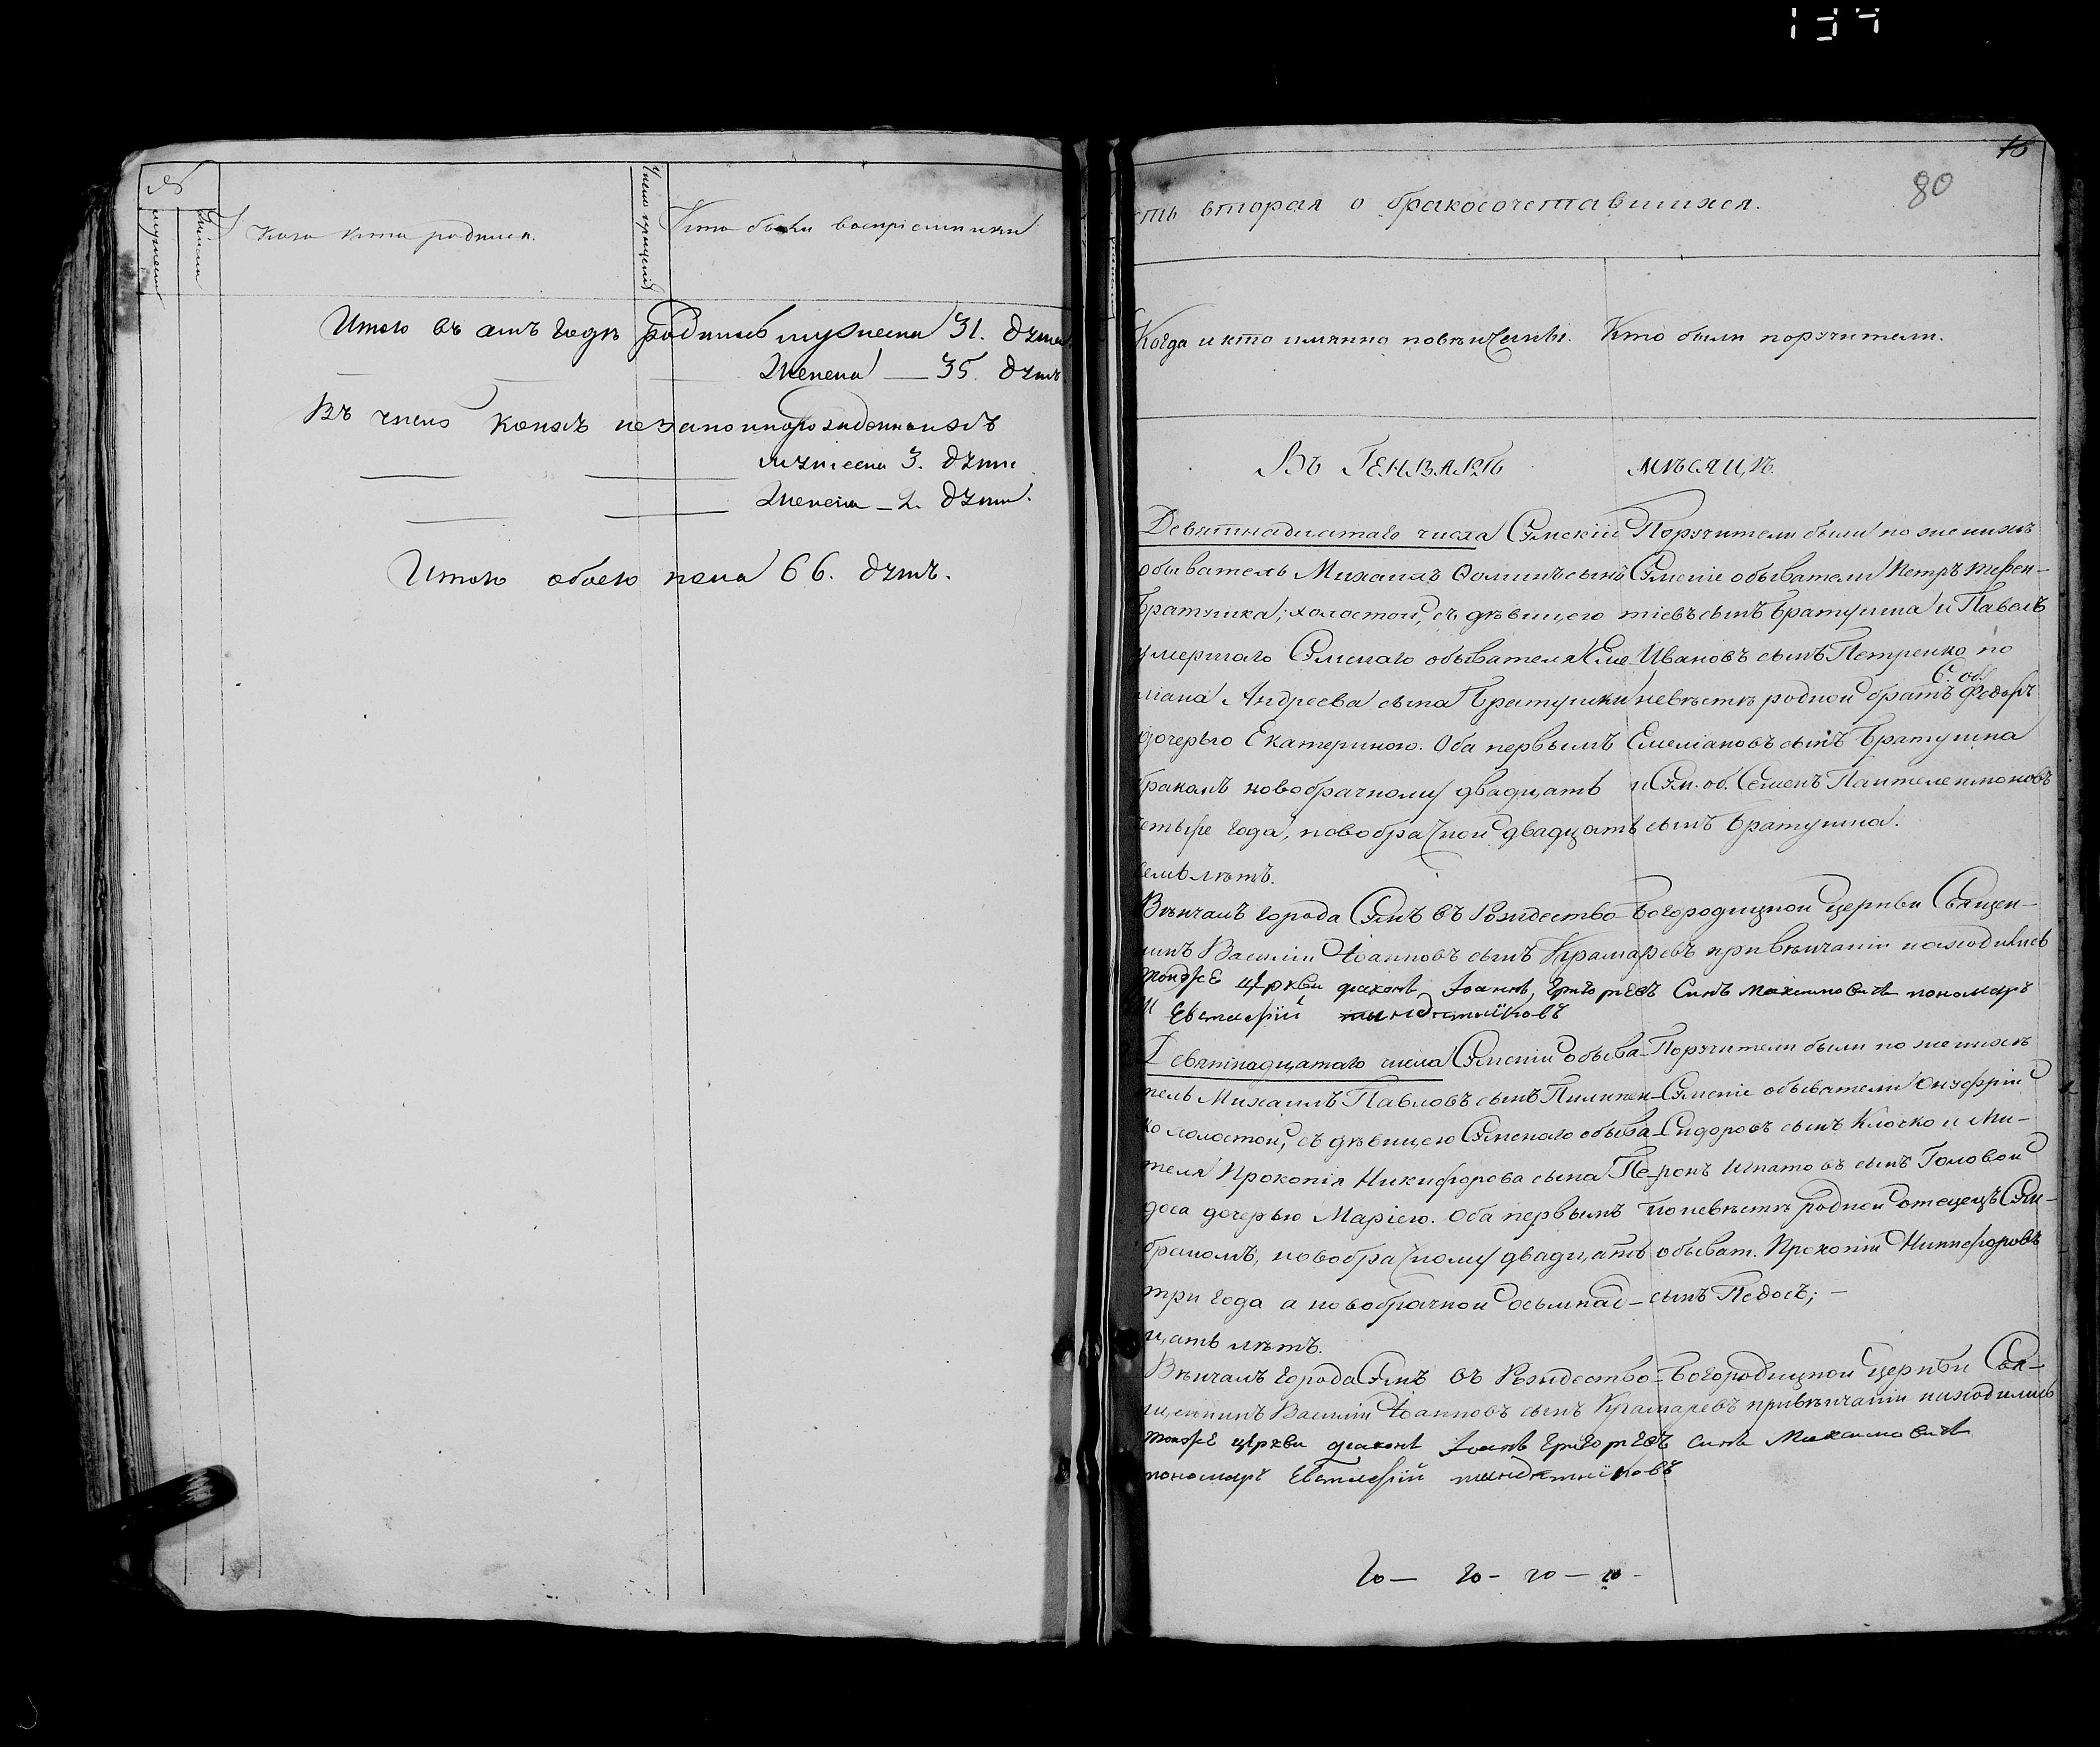 Кого кто родился.
Число крещенія
Кто были воспріемники
Итого въ семъ годѣ родилось мужеска 31. душа
Женска — 35. душъ
Въ числѣ коихъ незаконнорожденныхъ
мужеска 3. души
Женска — 2. души.
Итого обоего пола 66. душъ.
80
сть вторая о бракосочетавшихся.
Когда и кто имянно повѣнчаны. Кто были поручители.
Въ ГЕНВАРѢ МѢСЯЦѢ.
Девятнадцатаго числа Сумскій
обыватель Михаилъ Фоминъ сынъ
Братушка, холостой, съ дѣвицею
умершаго Сумскаго обывателя Еме-
ліана Андреева сына Братушки
дочерью Екатериною. Оба первымъ
бракомъ новобрачному двадцать
четыре года, новобрачной двадцать
семь лѣтъ.
Поручители были по женихѣ
Сумскіе обыватели Петръ Терен-
тіевъ сынъ Братушка и Павелъ
Ивановъ сынъ Петренко по
невѣстѣ родной братъ С. об. Федоръ
Емеліановъ сынъ Братушка
и Сум. об. Семенъ Пантелеимоновъ
сынъ Братушка.
Вѣнчалъ города Сумъ въ Рождество-Богородицкой церкви Священ-
никъ Василій Іоанновъ сынъ Крамаревъ при вѣнчаніи находились
тойже церкви діаконъ Іоаннъ Григорьевъ Синъ Максимовичъ пономарь
Евстафій
Девятнадцатаго числа Сумскій обыва-
тель Михаилъ Павловъ сынъ Пилипен-
ко холостой, съ дѣвицею Сумскаго обыва-
теля Прокопія Никифорова сына Пе-
доса дочерью Маріею. Оба первымъ
бракомъ, новобрачному двадцать
три года а новобрачной осьмнад-
цать лѣтъ.
Поручители были по женихѣ
Сумскіе обыватели Онуфрій
Сидоровъ сынъ Клочко и Ми-
ронъ Игнатовъ сынъ Головой
по невѣстѣ родной отецъ Сум-
обыват. Прокопій Никифоровъ
сынъ Педосъ; —
Вѣнчалъ города Сумъ въ Рождество-Богородицкой церкви Свя-
щенникъ Василій Іоанновъ сынъ Крамаревъ при вѣнчаніи находились
тойже церкви діаконъ Іоанъ Григорьевъ синъ Максимовичъ
пономарь Евстафій